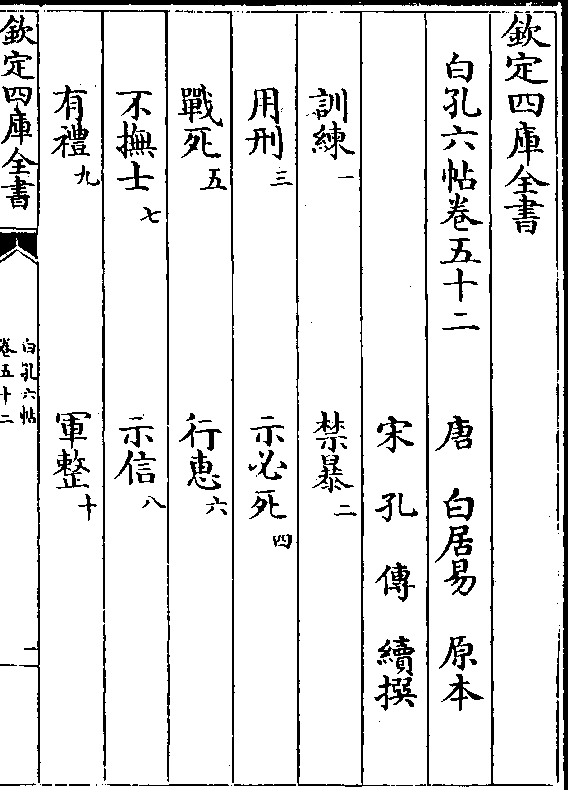 欽定四庫全書
白孔六帖卷五十二 唐 白居易 原本
宋 孔傳 續撰
訓練一 禁暴二
用刑三 示必死四
戰死五 行惠六
不撫士七 示信八
有禮九 軍整十
欽定四庫全書
白孔六帖
卷五十二
一